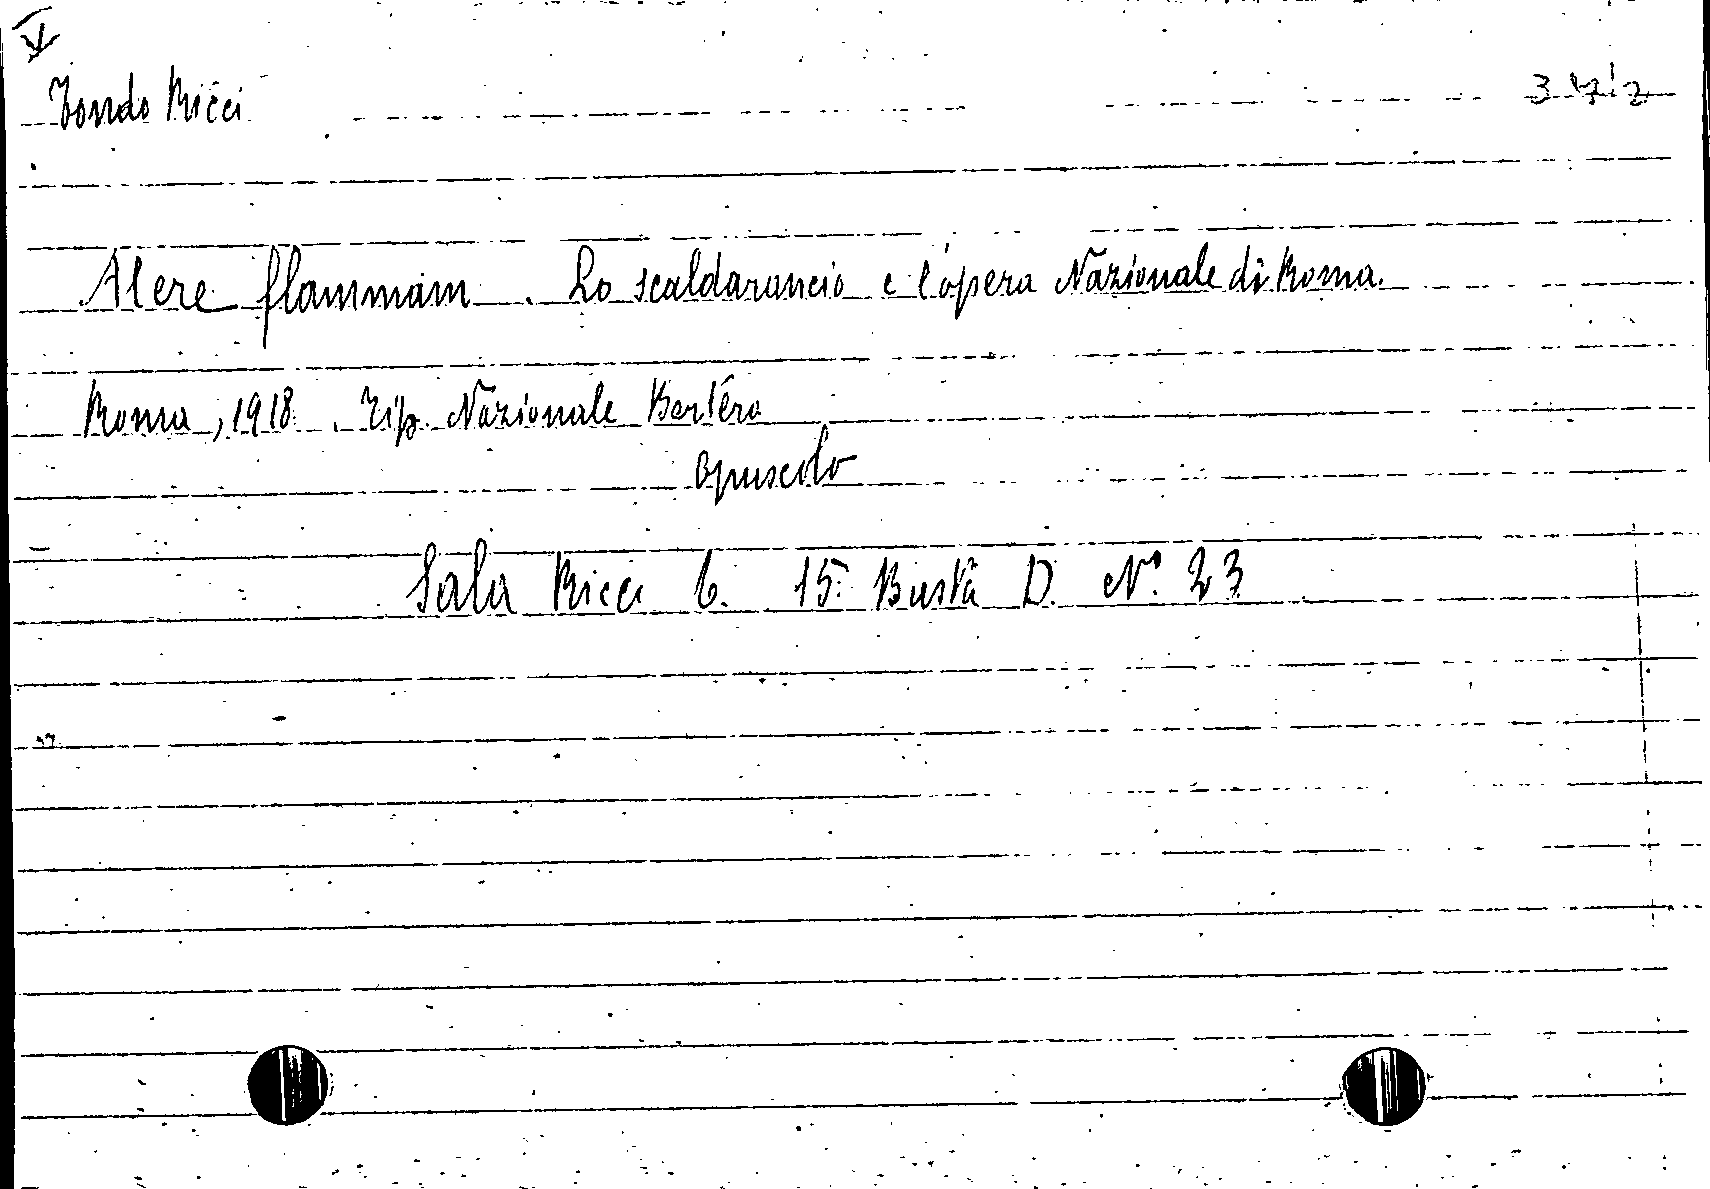 V
Fondo Ricci
Alere flammam. Lo scaldarancio e l'opera Nazionale di Roma.
Roma, 1918. Tip. Nazionale Bertèro
opuscolo
Sala Ricci 6. 15. Busta D. N° 23